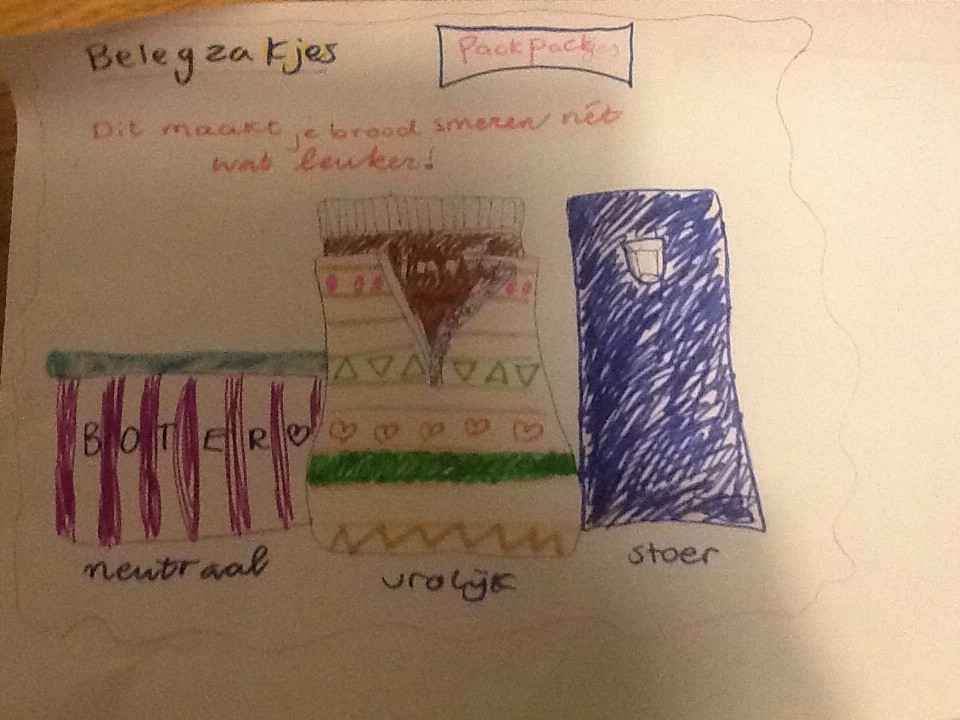 Belegzakjes
Packpackjes
Dit maakt je brood smeren nét
wat leuker!
BOTER
neutraal
vrolijk
stoer